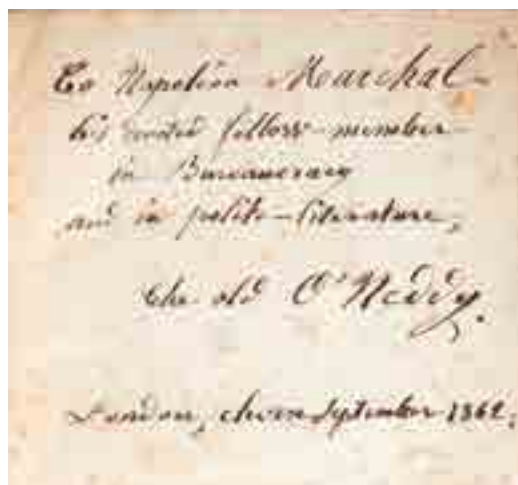 To Napoléon Marchal
his devoted fellow-member
in Bureaucracy
and in polite-literature,
the old O'Neddy.
London, September 1862.